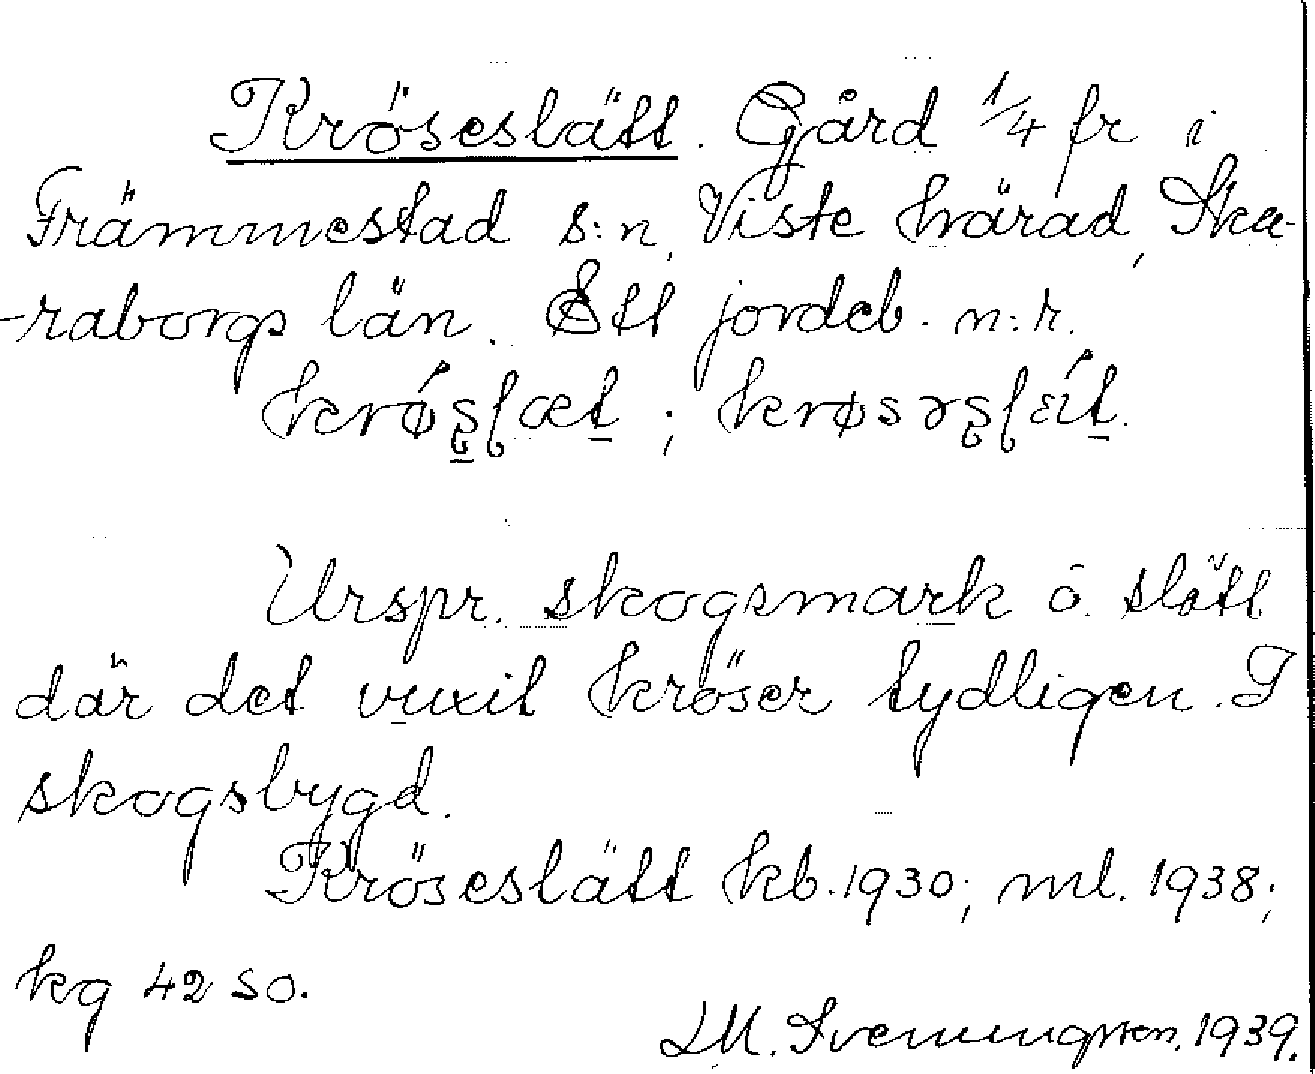 Kröseslätt. Gård 1/4 fr i
Främmestad s:n, Viste härad, Ska-
-raborgs län. Ett jordeb. n:r.
Urspr. skogsmark o. slätt
där det vuxit kröser tydligen. I
skogsbygd.
Kröseslätt kb. 1930; ml. 1938;
kg 42 SO.
LM. Svenungsson. 1939.